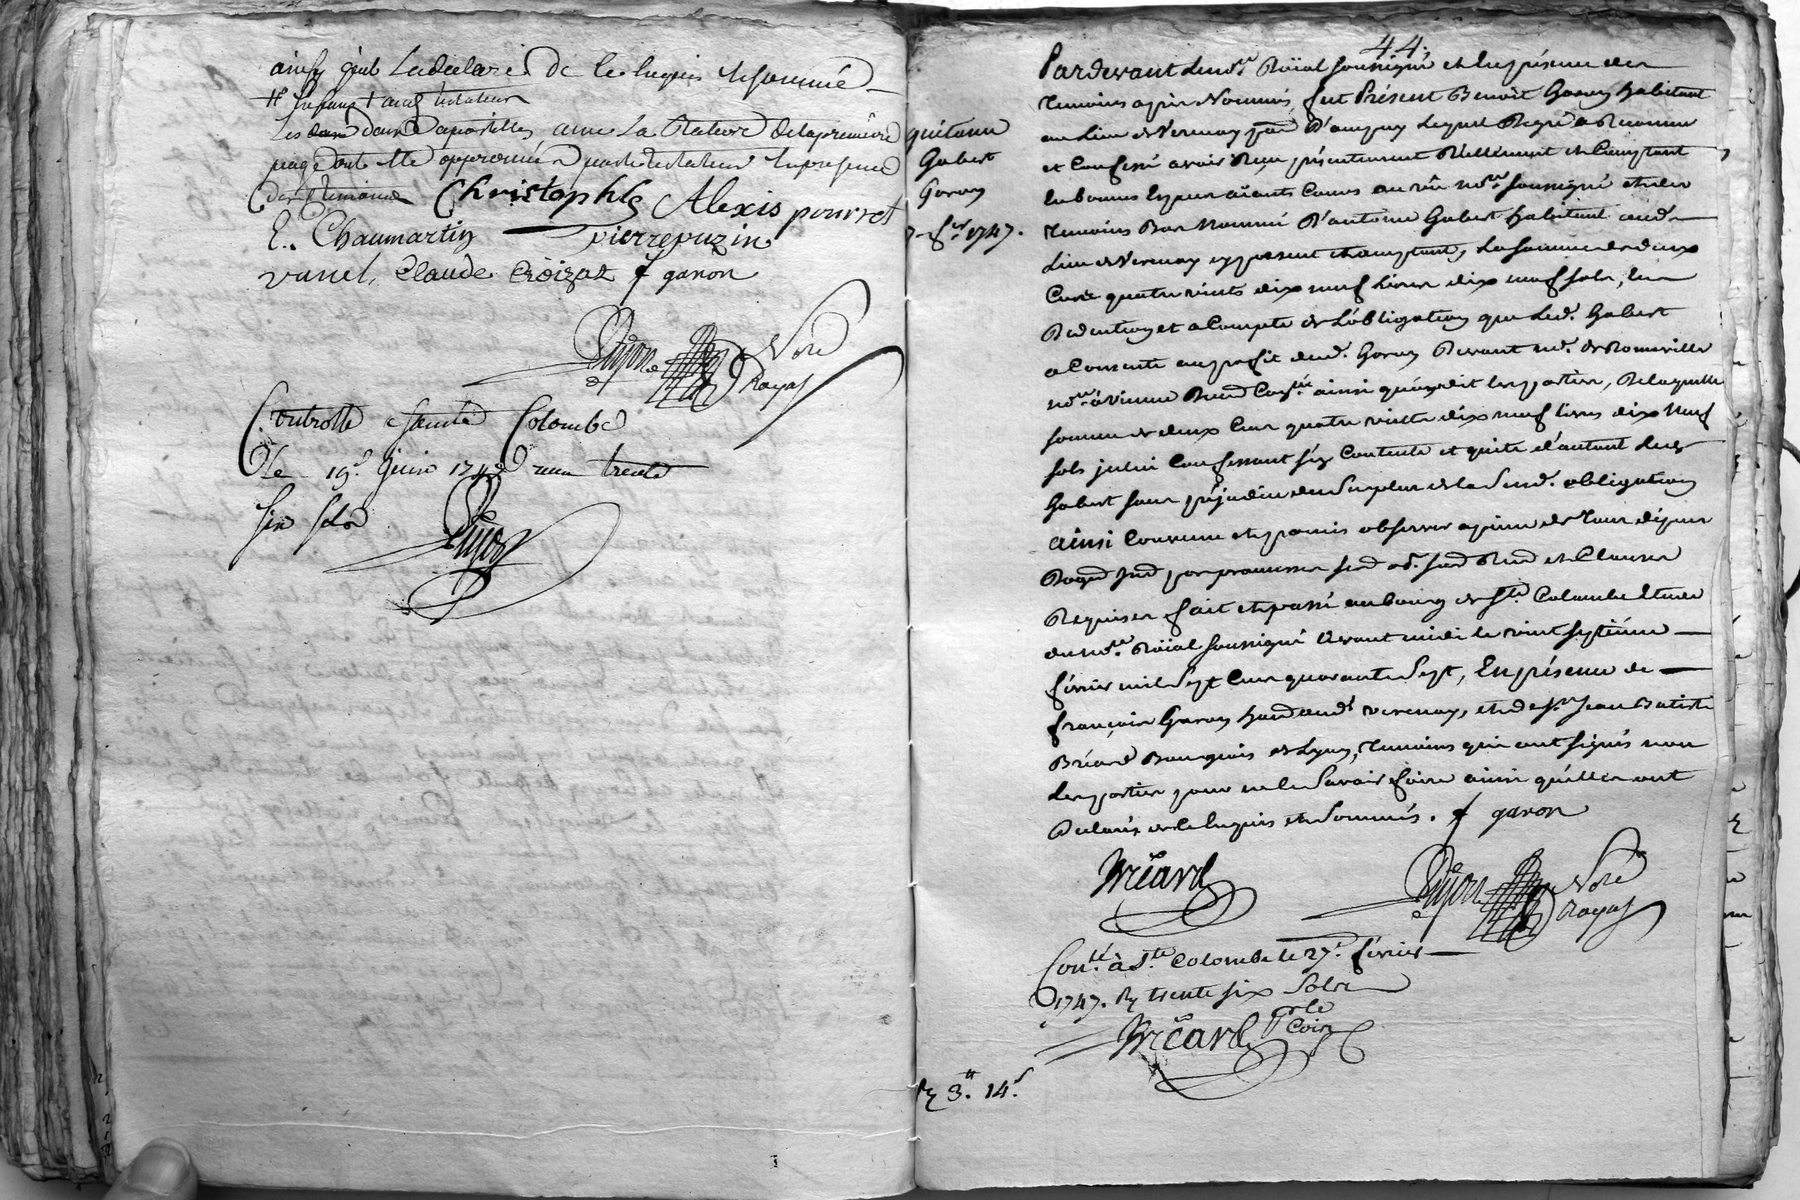 ainsy qu'ils de ce Enquis et sommé
Les dans apostilles avec La Rature de la premiere
page dont elle approuvée par le testateur En presence
des temoins Christophle Alexis pourret
E. Chaumartin pierre puzin
vanel, Claude Croizat f garon
Dujon Noré
Royal
Controllé a Sainte Colombe
le 19e juin 1748 reçu trente
six sols
Dujon
44
Pardevant Le nore. Roïal soussigné et En présence des
temoins apres Nommés, fut Présent Benoit Garon habitant
au Lieu de Vernay psse D'ampuy Lequel De gré a Reconnu
et Confessé avoir Reçu présentement Réellement et Comptant
En bonnes Especes aïants Cours au vû nore. soussigné et des
temoins Bas Nommé D'antoine Gabert habitant aud.
Lieu de Vernay cy present et acceptant, La somme de deux
Cens quatre vints dix neuf Livres dix neuf sols, En
Deduction et a Compte de L'obligation que Led. Gabert
a Consenti au profit dud. Garon Devant Me. de Romeville
nore. à Vienne ainsi qu'ont dit les parties, De laquelle
somme de deux Cens quatre vints dix neuf livres dix Neuf
sols Confessant s'en Contente et quite d'autant Led.
Gabert sans préjudice du surplus de la Susd. obligation
ainsi Convenu et promis observer a peine de tous dépens
par promesses et Clauses
Requises fait et passé au bourg de Ste. Colombe Etude
du nore. Roïal soussigné Avant midi le vint septiéme
février mil Sept Cens quarante Sept, En présence de
françois Garon dud. vernay, et de Sr. Jean Batiste
Bréard Bourgeois de Lyon, temoins qui ont signés non
Les parties pour ne le Savoir faire ainsi qu'elles ont
Declarés de ce Enquis et Sommés. f garon
Bréard
Dujon Noré
Royal
Conllé. à Ste. Colombe le 27e. février
1747. R. trente six Sols
Bréard Pr le
Coin
quitance
Gabert
Garon
27 fer. 1747.
R. 3.tt 14.s